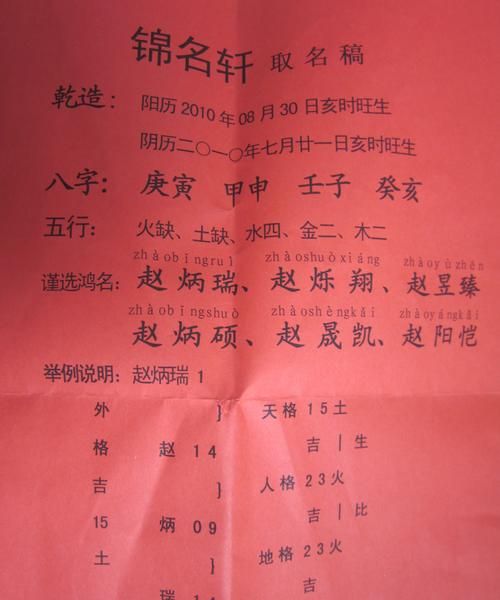 锦名轩 取名稿
乾造： 阳历2010年08月30日亥时旺生
阴历二〇一〇年七月廿一日亥时旺生
八字： 庚寅 甲申 壬子 癸亥
五行： 火缺、土缺、水四、金二、木二
zhàobǐngruì zhàoshuòxiáng zhàoyùzhēn
谨选鸿名： 赵炳瑞、赵烁翔、赵昱臻
zhàobǐngshuò zhàoshèngkǎi zhàoyángkǎi
赵炳硕、赵晟凯、赵阳恺
举例说明：赵炳瑞 1
外 } 天格 15土
格 赵 14 吉 | 生
吉 } 人格 23火
15 炳 09 吉 | 比
土 } 地格 23火
瑞 14 吉